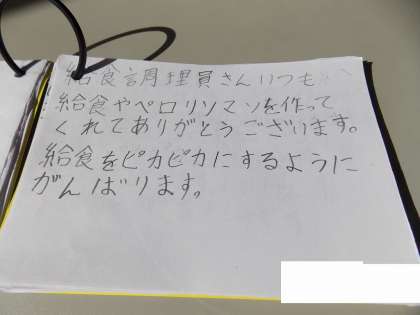 給食調理員さんいつも
給食やペロリンマンを作って
くれてありがとうございます。
給食をピカピカにするように
がんばります。